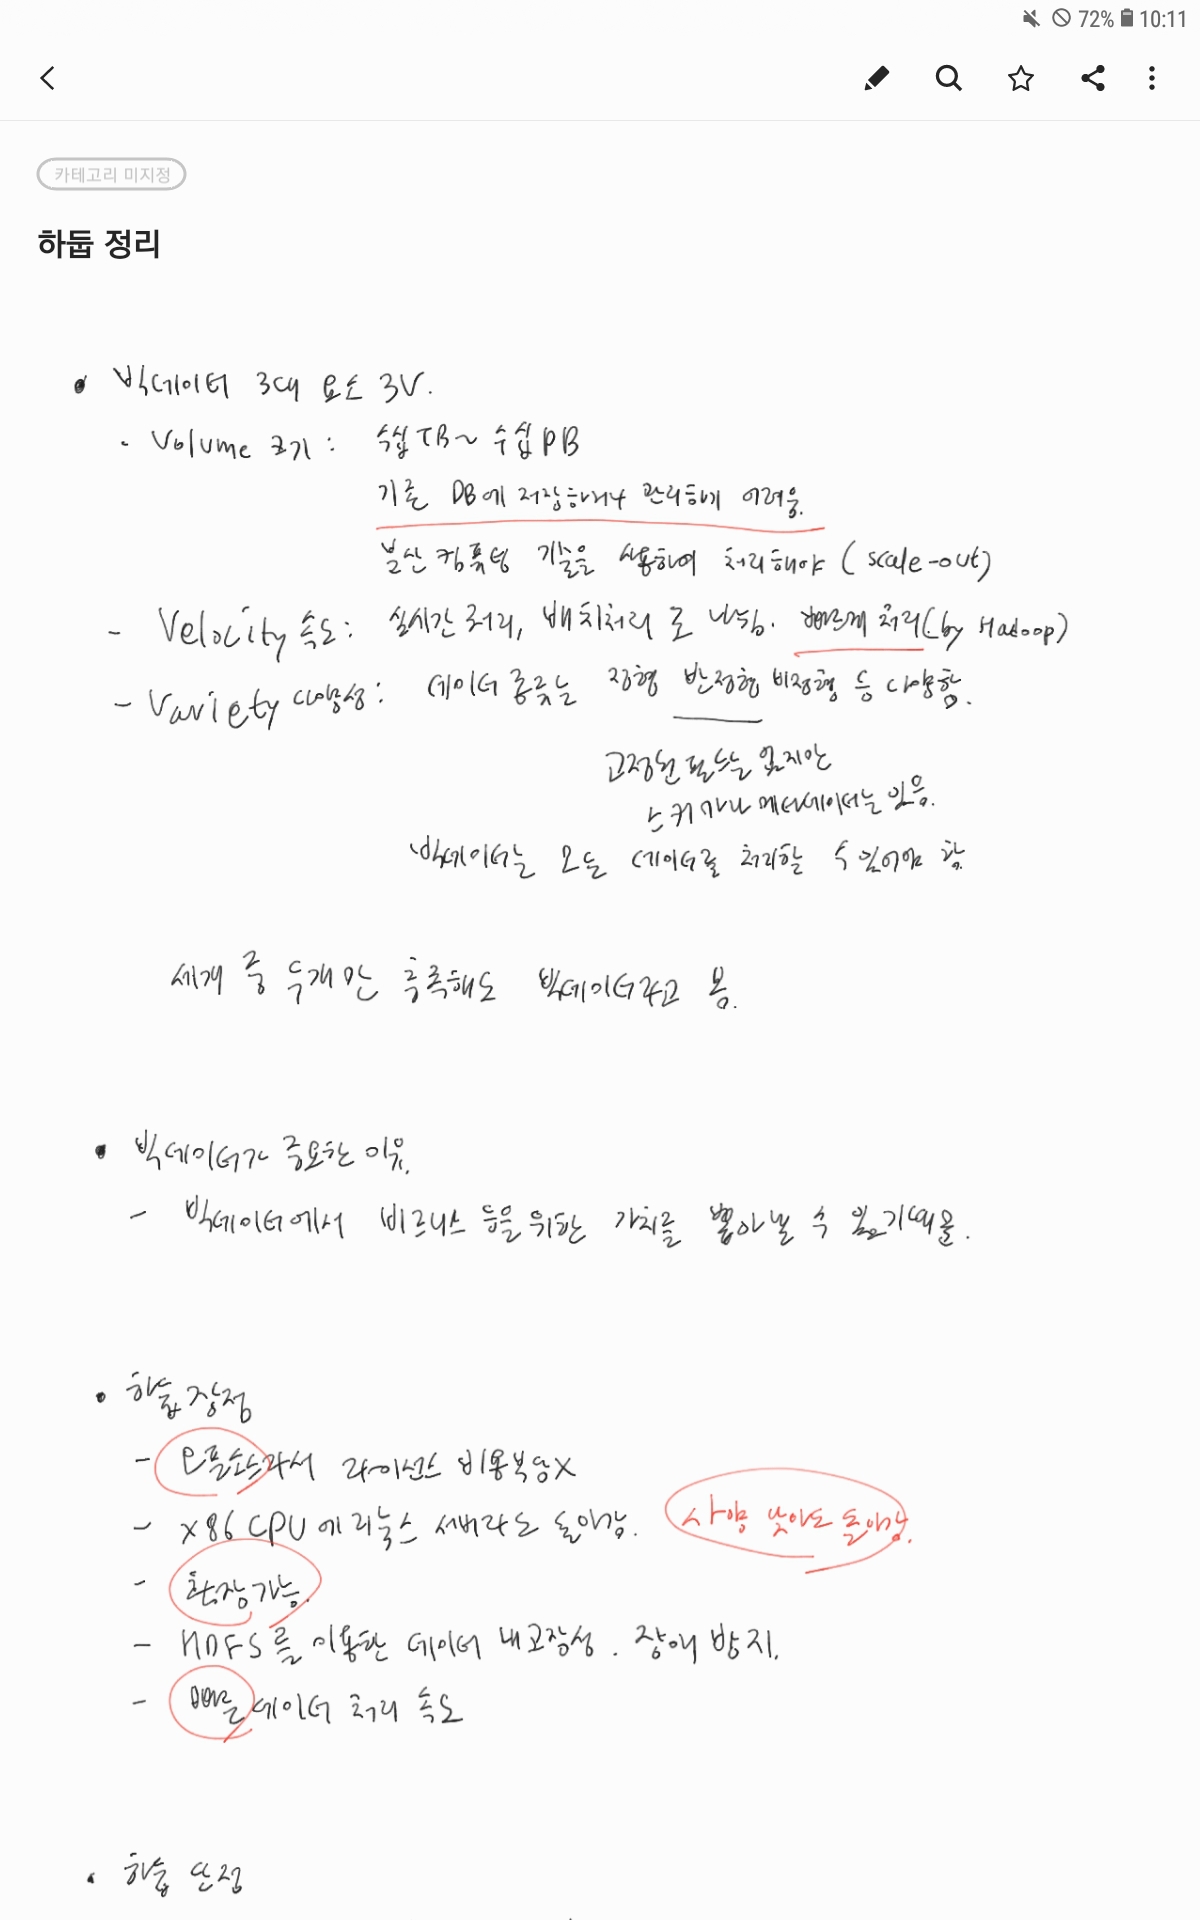 72% 10:11
카테고리 미지정
하둡 정리
• 빅데이터 3대 요소 3V.
· Volume 크기 : 수십TB~ 수십PB
기존 DB에 저장하거나 관리하기 어려움.
분산 컴퓨팅 기술을 사용하여 처리해야 (scale-out)
- Velocity 속도 : 실시간 처리, 배치처리 로 나뉨. 빠르게 처리(by Hadoop)
- Variety 다양성 : 데이터 종류는 정형 반정형 비정형 등 다양함.
고정된 필드는 없지만
스키마나 메타데이터는 있음.
빅데이터는 모든 데이터를 처리할 수 있어야 함.
세개 중 두개만 충족해도 빅데이터라고 봄.
• 빅데이터가 중요한 이유.
- 빅데이터에서 비즈니스 등을 위한 가치를 뽑아낼 수 있기때문.
• 하둡 장점
- 오픈소스라서 라이선스 비용부담X
- x86 CPU에 리눅스 서버라도 돌아감. 사양 낮아도 돌아감.
- 확장가능.
- HDFS를 이용한 데이터 내고장성. 장애 방지.
- 빠른 데이터 처리 속도
• 하둡 단점